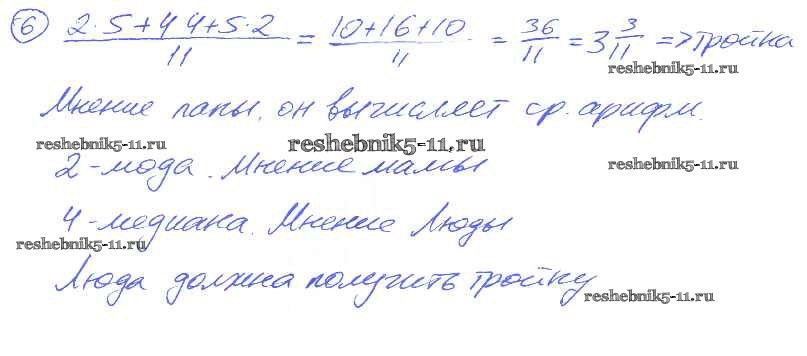 6 2·5+4 4+5·2 / 11 = 10+16+10 / 11 = 36/11 = 3 3/11 => Тройка
reshebnik5-11.ru
Мнение папы, он вычисляет ср. арифм.
reshebnik5-11.ru reshebnik5-11.ru
2-мода. Мнение мамы reshebnik5-11.ru
4-медиана. Мнение Люды
reshebnik5-11.ru
Люда должна получить тройку
reshebnik5-11.ru